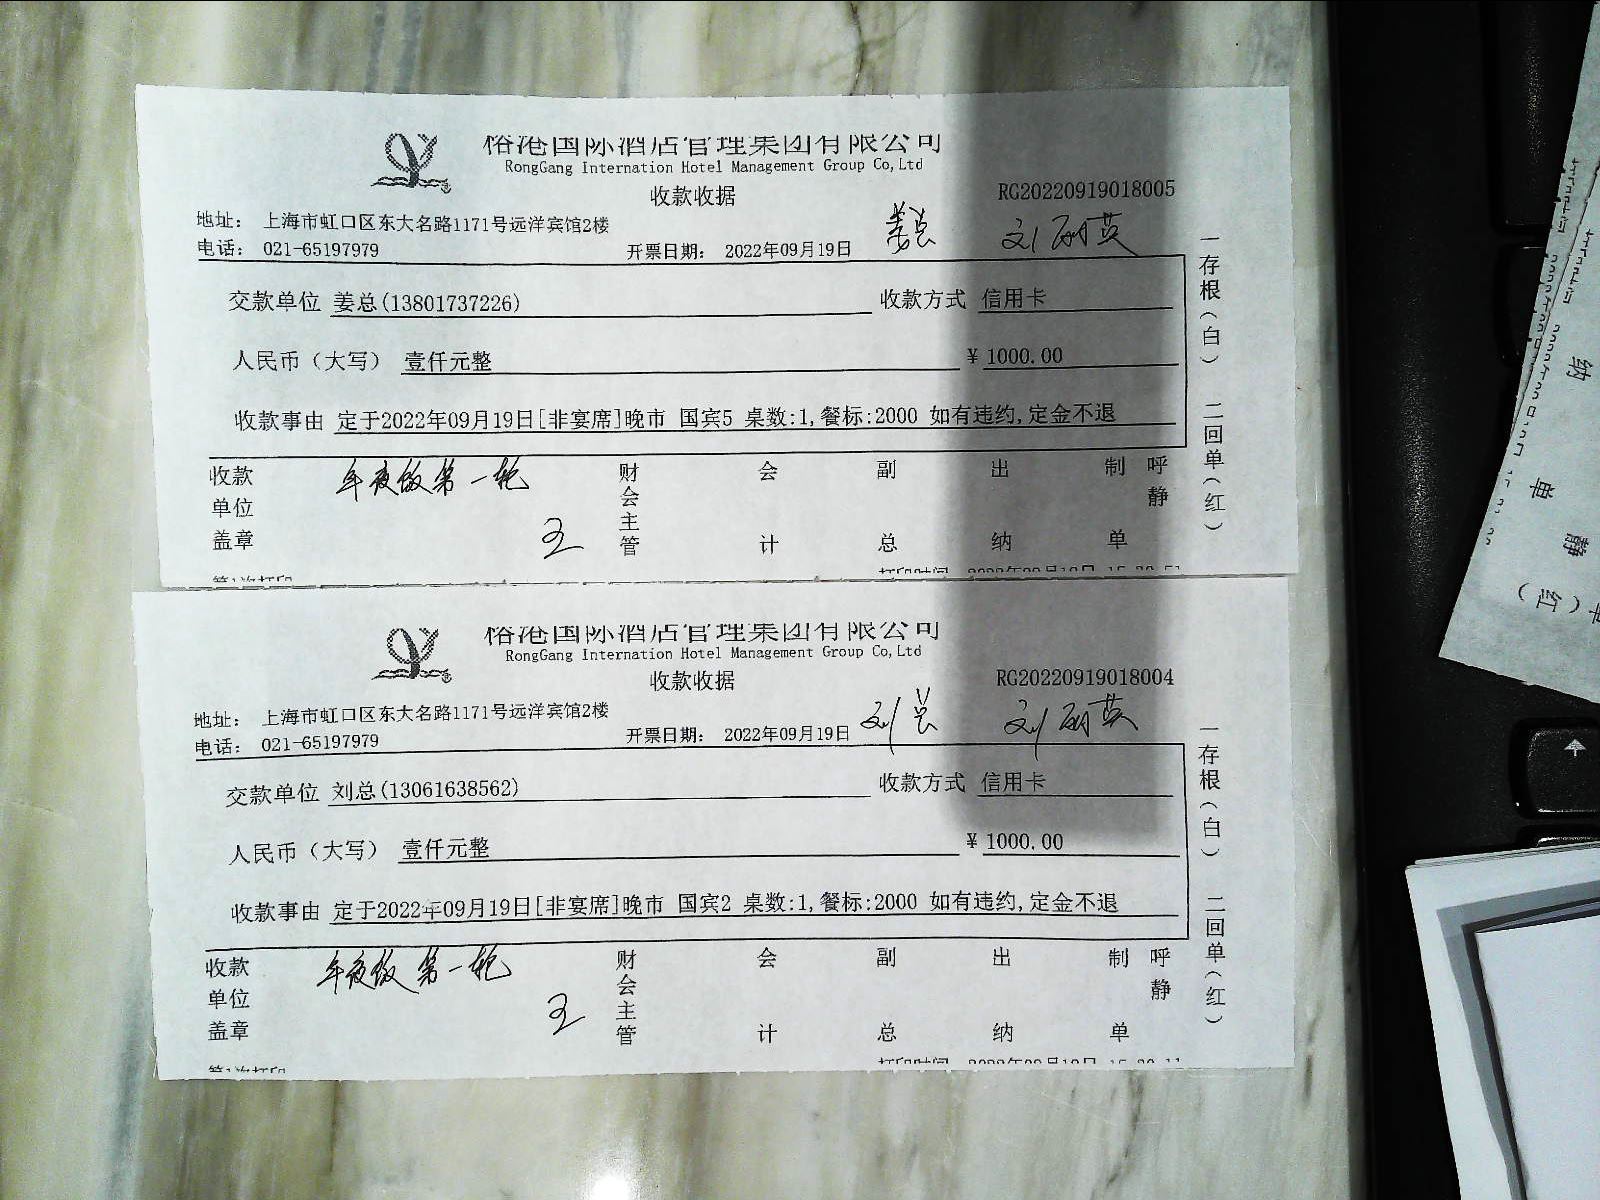 榕港国际酒店管理集团有限公司
RongGang Internation Hotel Management Group Co,Ltd
收款收据
RG20220919018005
地址： 上海市虹口区东大名路1171号远洋宾馆2楼
电话： 021-65197979
开票日期： 2022年09月19日
姜总 刘丽英
交款单位 姜总(13801737226) 收款方式 信用卡
人民币（大写） 壹仟元整 ¥ 1000.00
收款事由 定于2022年09月19日[非宴席]晚市 国宾5 桌数:1,餐标:2000 如有违约,定金不退
收款单位盖章 年夜饭第一轮 王 财会主管 会计 副总 出纳 制单 呼静
一存根（白） 二回单（红）
第1次打印
榕港国际酒店管理集团有限公司
RongGang Internation Hotel Management Group Co,Ltd
收款收据
RG20220919018004
地址： 上海市虹口区东大名路1171号远洋宾馆2楼
电话： 021-65197979
开票日期： 2022年09月19日
刘总 刘丽英
交款单位 刘总(13061638562) 收款方式 信用卡
人民币（大写） 壹仟元整 ¥ 1000.00
收款事由 定于2022年09月19日[非宴席]晚市 国宾2 桌数:1,餐标:2000 如有违约,定金不退
收款单位盖章 年夜饭第一轮 王 财会主管 会计 副总 出纳 制单 呼静
一存根（白） 二回单（红）
第1次打印
纳
单
静
（红）